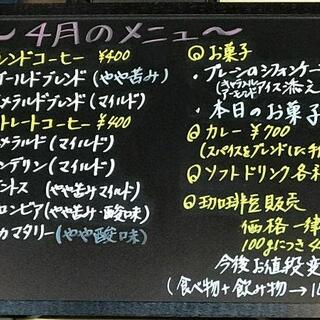 ～4月のメニュー～
レンドコーヒー ¥400
ールドブレンド（やや苦み）
メラルドブレンド（マイルド）
トレートコーヒー ¥400
メラルド（マイルド）
ンデリン（マイルド）
ントス（やや苦みマイルド）
ロンビア（やや苦み・酸味）
カマタリー（やや酸味）
◎お菓子
・プレーンのシフォンケー
（キャラメル アーモンドアイス添え
・本日のお菓子
◎カレー ¥700
（スパイスをブレンドした手
◎ソフトドリンク各種
◎珈琲豆販売
価格一律
100gにつき4
今後お値段変
（食べ物+飲み物→1